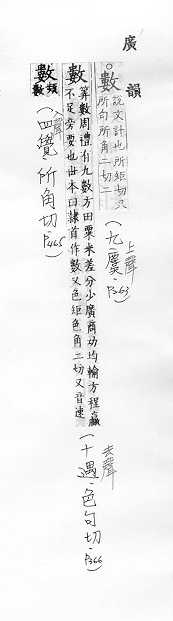 廣韻
數
說文計也所矩切又
所句所角二切二
(九麌·P263)
上聲
數
算數周禮有九數方田粟米差分少廣商功均輸方程贏
不足旁要也世本曰隸首作數又色矩色角二切又音速
(十遇·色句切·P366)
去聲
數
頻
數
入聲
(四覺 所角切 P465)